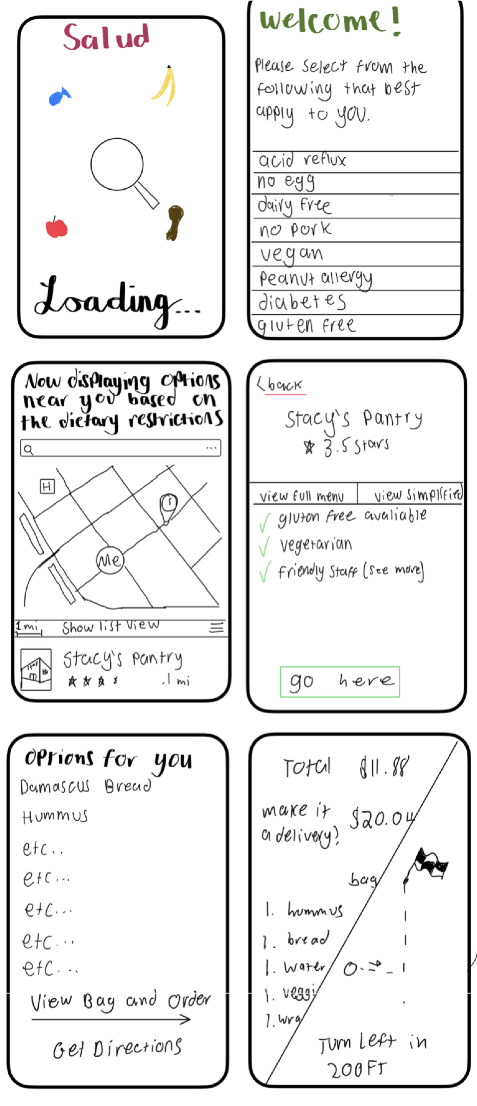 Salud
Loading...
Welcome!
Please select from the
following that best
apply to you.
acid reflux
no egg
dairy free
no pork
vegan
Peanut allergy
diabetes
gluten free
Now displaying options
near you based on
the dietary restrictions
...
H
S
Me
1 mi
Show list view
Stacy's Pantry
.1 mi
<back
Stacy's Pantry
3.5 stars
view full menu
view simplified
gluton free avaliable
vegetarian
friendly staff (see more)
go here
Options for you
Damascus Bread
Hummus
etc..
etc...
etc...
etc...
etc...
View Bag and Order
Get Directions
Total $11.88
make it
a delivery?
$20.04
bag
1. hummus
1. bread
1. water
1. veggi
1. wra
Turn Left in
200FT